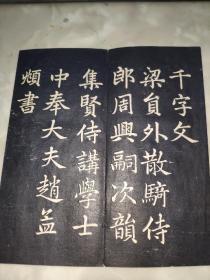 千字文
梁負外散騎侍
郎周興嗣次韻
集賢侍講學士
中奉大夫趙孟
頫書